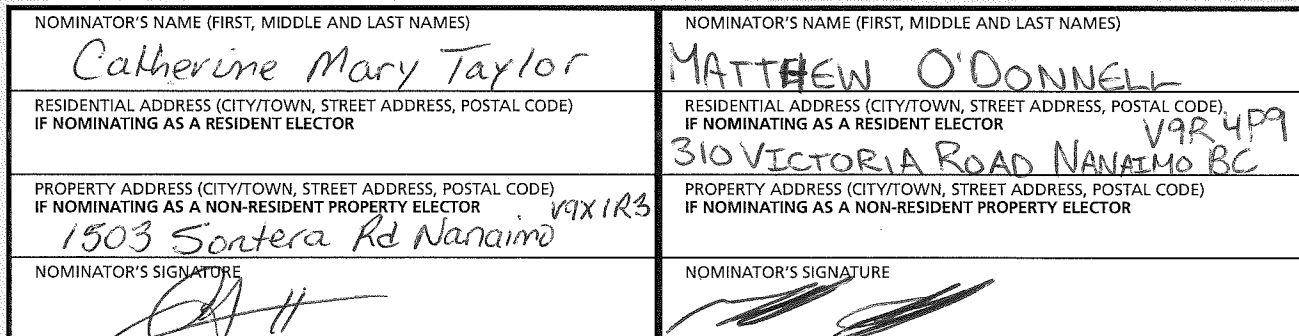 NOMINATOR'S NAME (FIRST, MIDDLE AND LAST NAMES)
Catherine Mary Taylor
RESIDENTIAL ADDRESS (CITY/TOWN, STREET ADDRESS, POSTAL CODE)
IF NOMINATING AS A RESIDENT ELECTOR
PROPERTY ADDRESS (CITY/TOWN, STREET ADDRESS, POSTAL CODE)
IF NOMINATING AS A NON-RESIDENT PROPERTY ELECTOR
V9X 1R3
1503 Sontera Rd Nanaimo
NOMINATOR'S SIGNATURE
NOMINATOR'S NAME (FIRST, MIDDLE AND LAST NAMES)
MATTHEW O'DONNELL
RESIDENTIAL ADDRESS (CITY/TOWN, STREET ADDRESS, POSTAL CODE)
IF NOMINATING AS A RESIDENT ELECTOR
V9R 4P9
310 VICTORIA ROAD NANAIMO BC
PROPERTY ADDRESS (CITY/TOWN, STREET ADDRESS, POSTAL CODE)
IF NOMINATING AS A NON-RESIDENT PROPERTY ELECTOR
NOMINATOR'S SIGNATURE